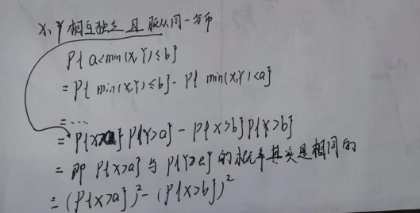 X、Y 相互独立 且 服从同一分布
P{ a<min(X,Y)≤b}
= P{ min(X,Y)≤b} - P{ min(X,Y)≤a}
= ...
= P{X>a} P{Y>a} - P{X>b}P{Y>b}
= 即 P{X>a} 与 P{Y>a} 的概率其实是相同的
= (P{X>a})² - (P{X>b})²